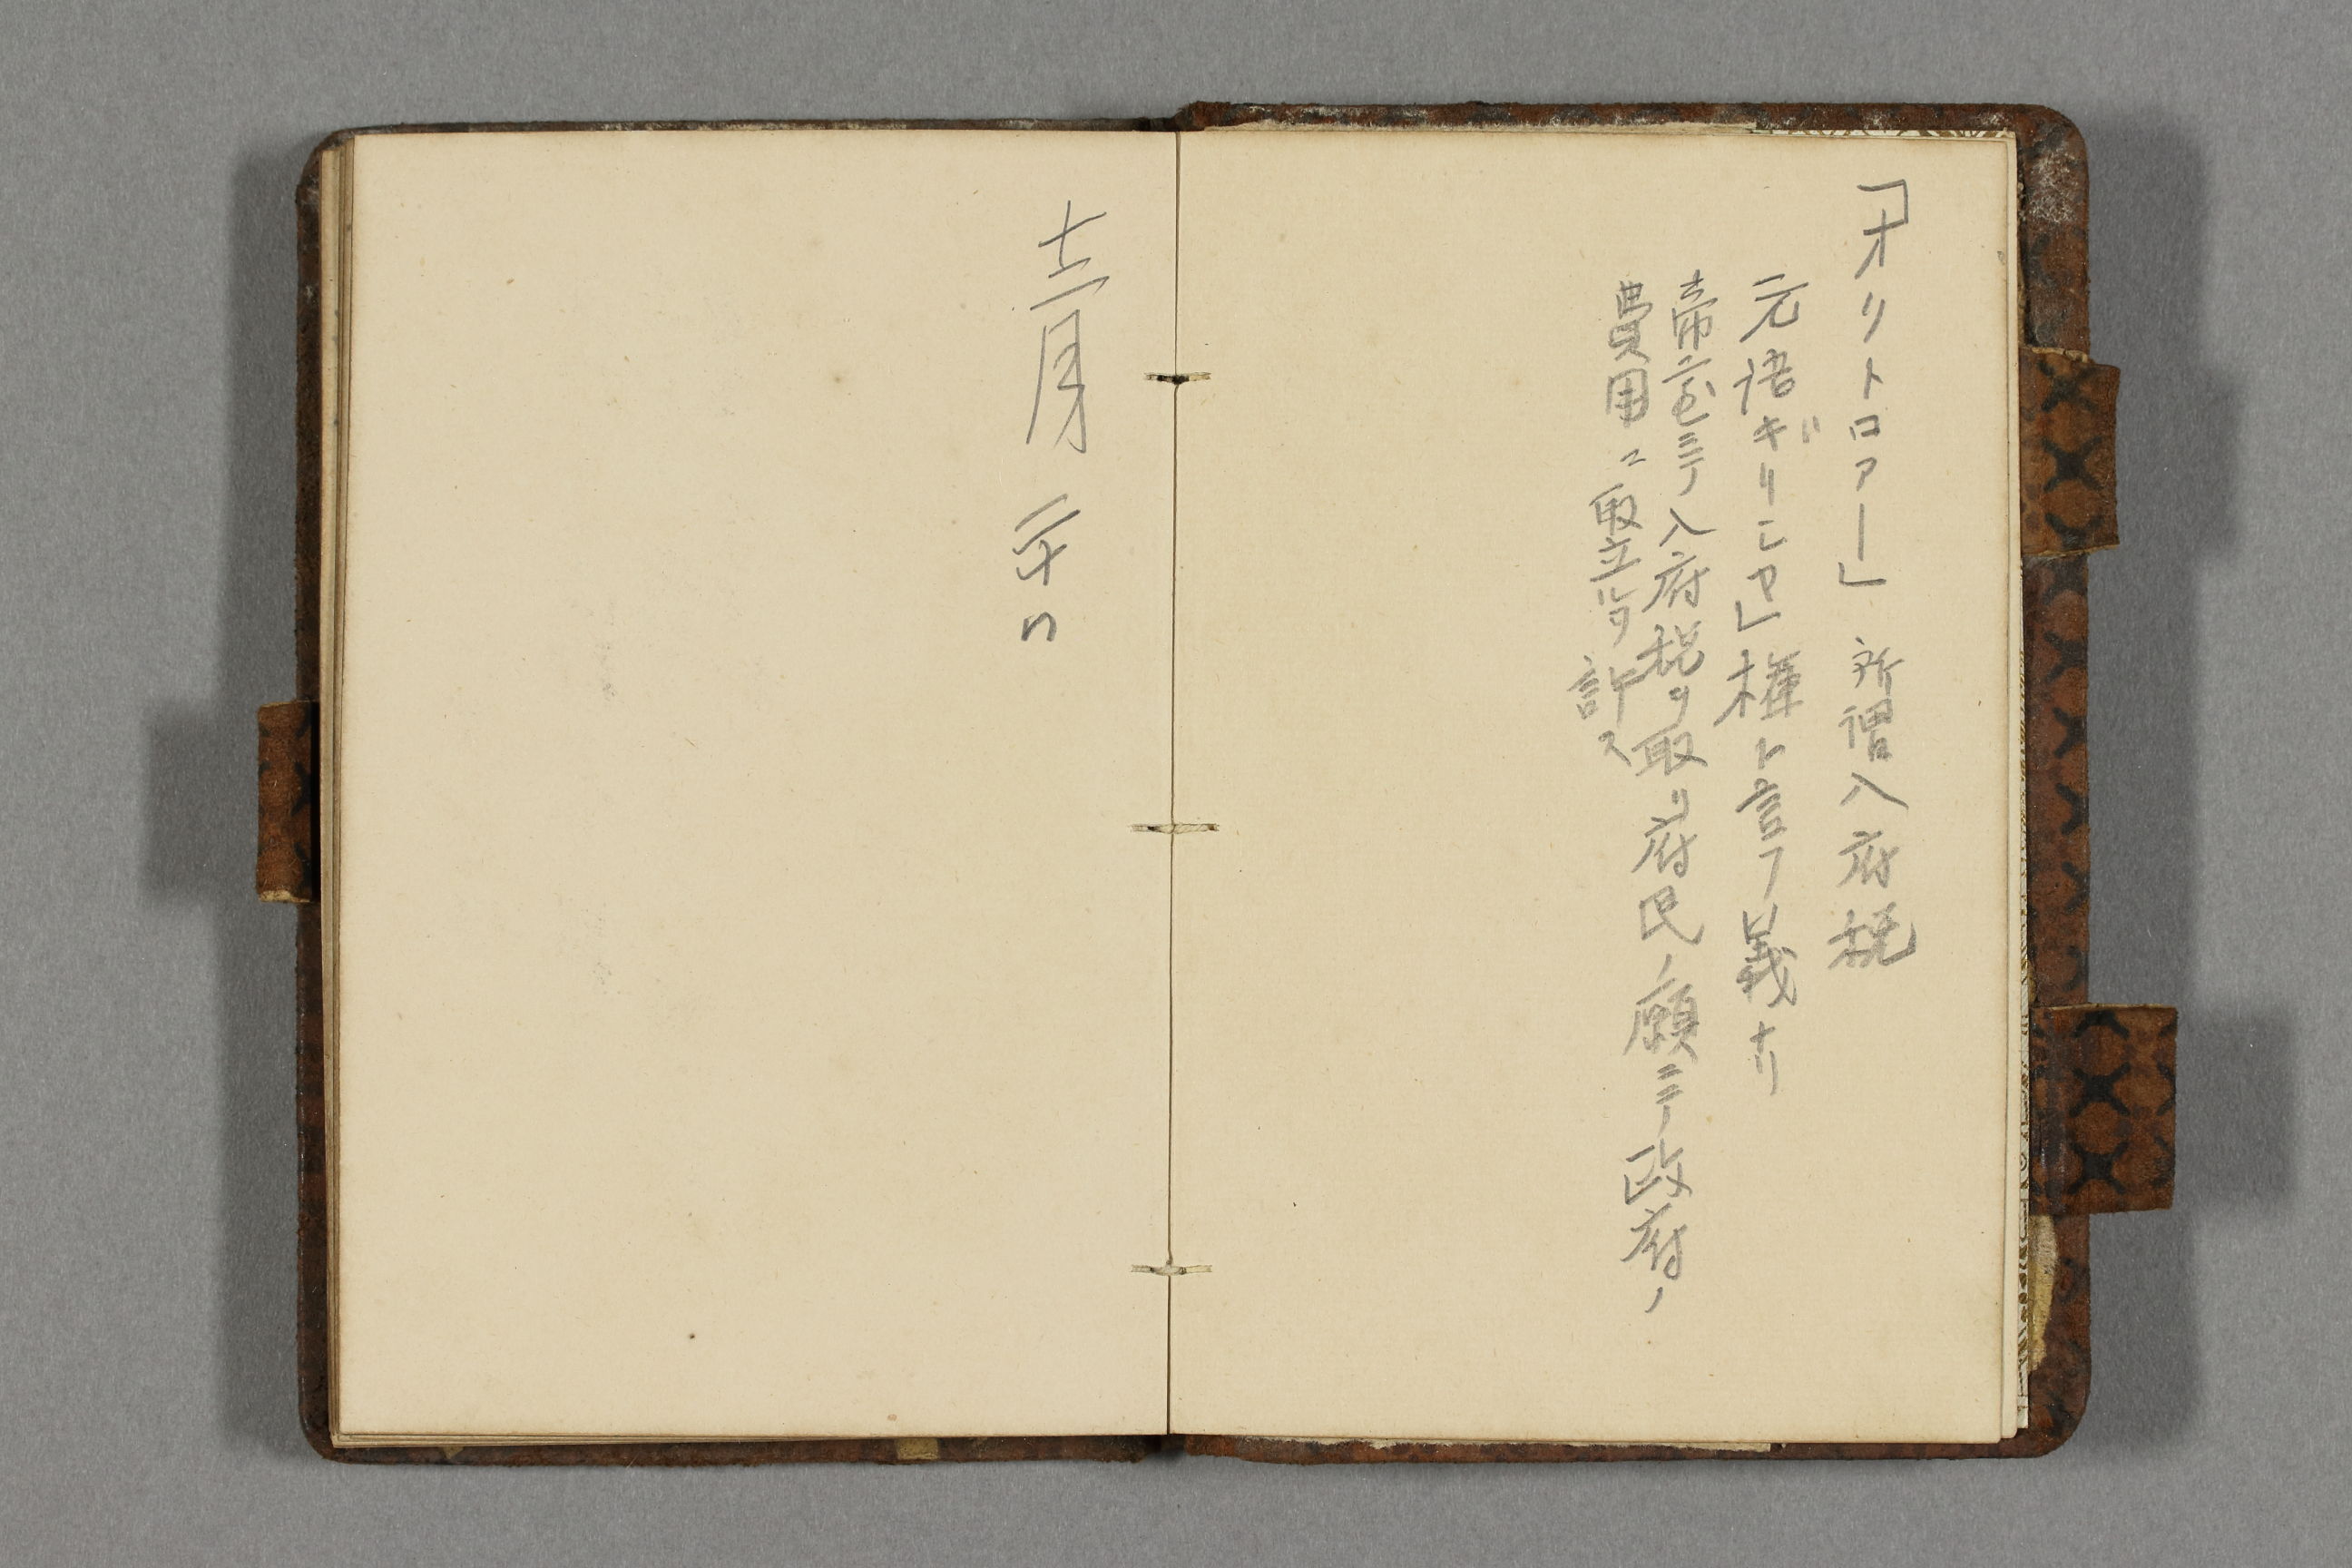 「オクトロアー」所謂入府税
元語ギリシヤ」権ト言フ義ナリ
帝室ニテ入府税ヲ取リ府民ノ願ニテ政府ノ
費用ニ取立ルヲ許ス
十二月二十日